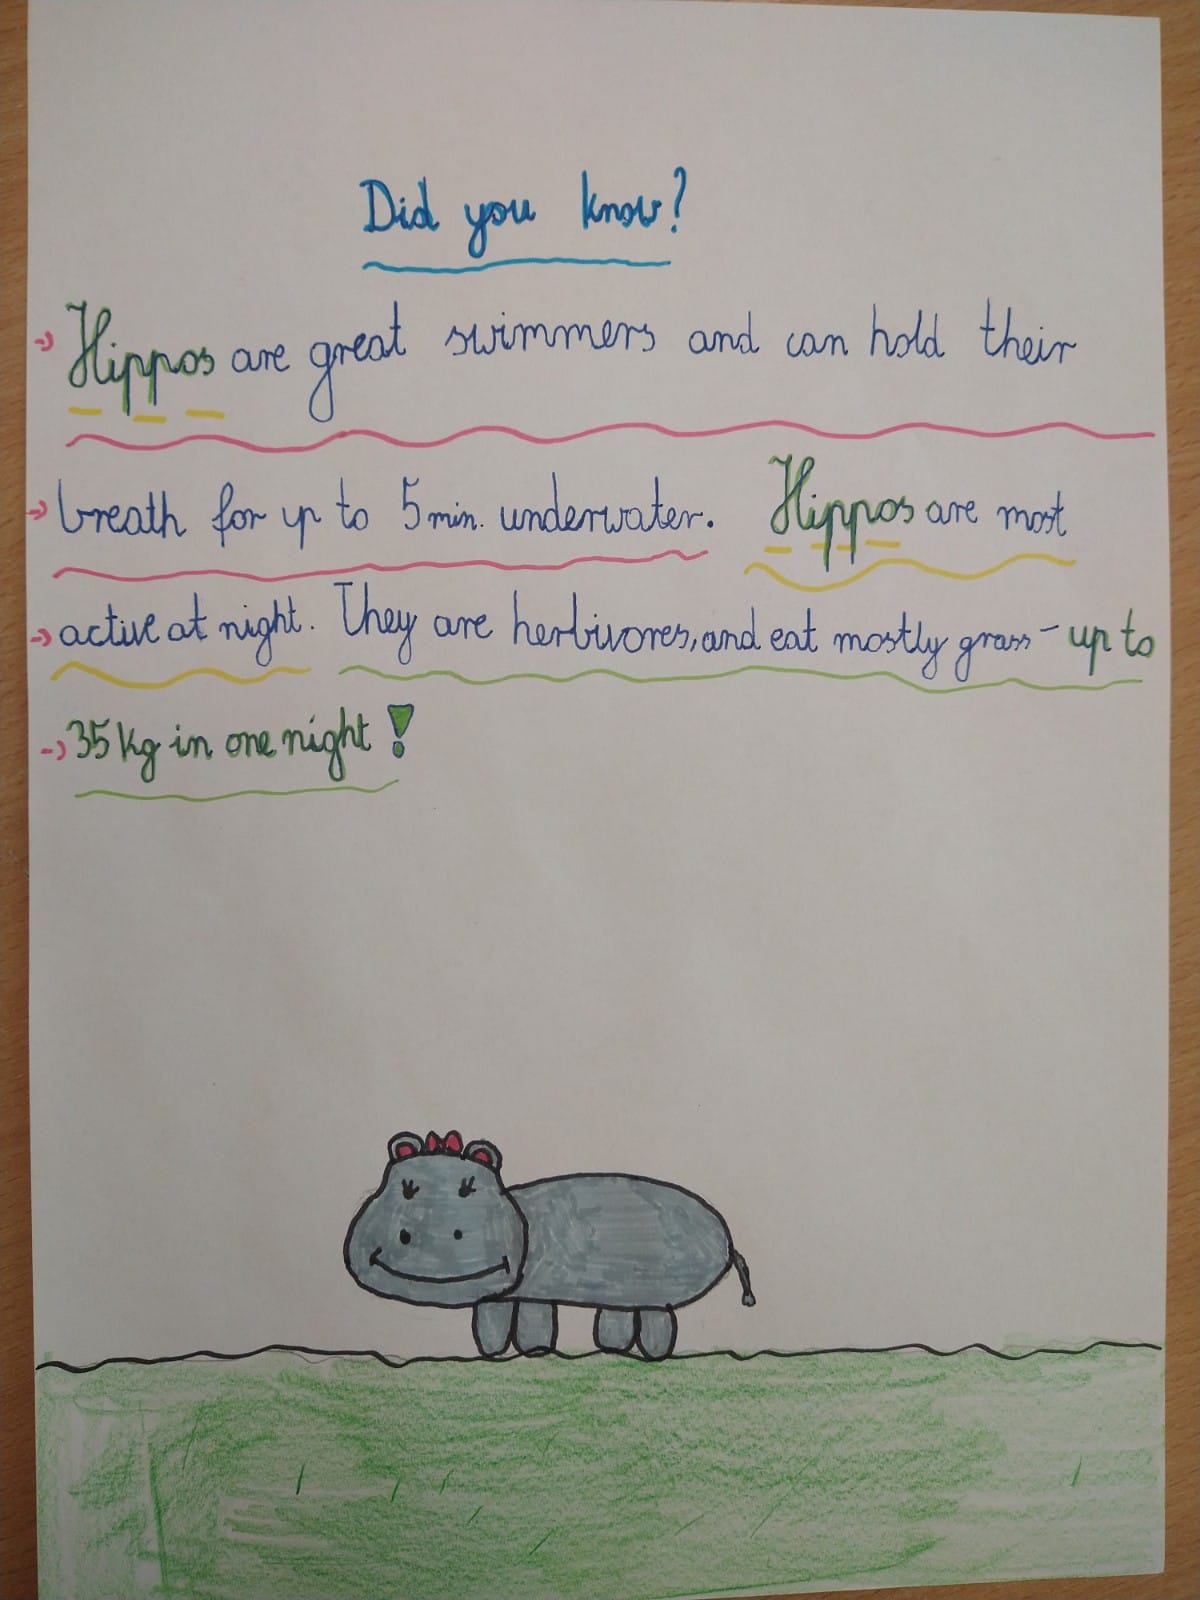 Did you know?
→ Hippos are great swimmers and can hold their
→ breath for up to 5 min. underwater. Hippos are most
→ active at night. They are herbivores, and eat mostly grass - up to
→ 35 kg in one night!